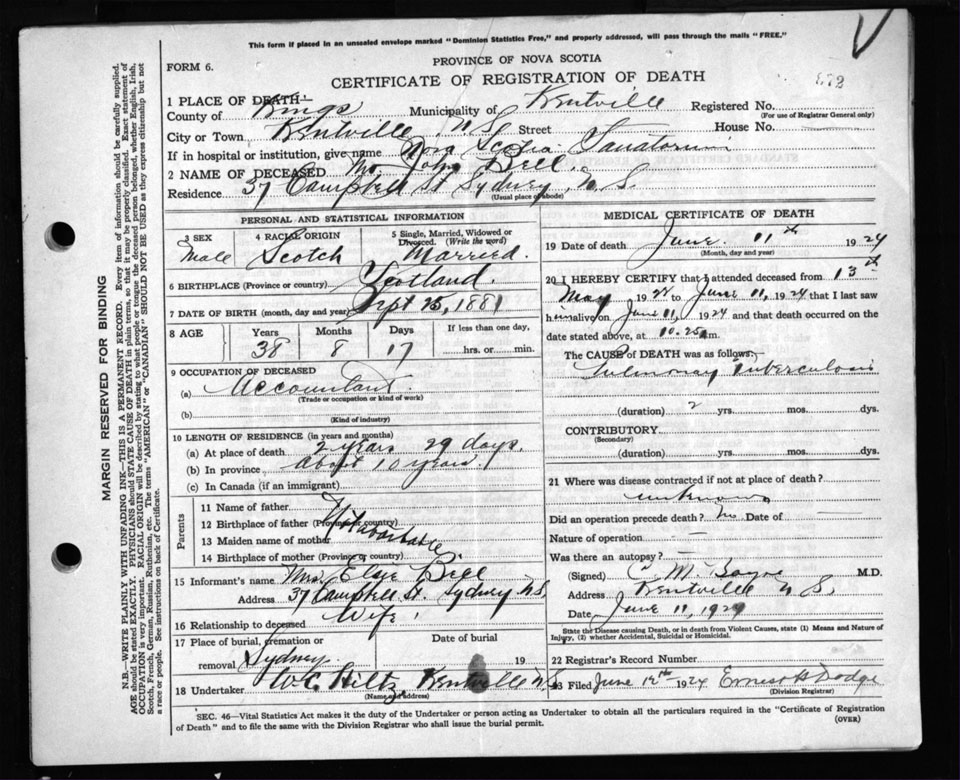 This form if placed in an unsealed envelope marked "Dominion Statistics Free," and properly addressed, will pass through the mails "FREE."
PROVINCE OF NOVA SCOTIA
FORM 6.
CERTIFICATE OF REGISTRATION OF DEATH
1 PLACE OF DEATH
County of Kings Municipality of Kentville Registered No.
(For use of Registrar General only)
City or Town Kentville, N S Street House No.
If in hospital or institution, give name Nova Scotia Sanatorium
2 NAME OF DECEASED Mr. John Bell.
Residence 37 Campbell St Sydney, N. S.
(Usual place of abode)
PERSONAL AND STATISTICAL INFORMATION
3 SEX 4 RACIAL ORIGIN 5 Single, Married, Widowed or Divorced. (Write the word)
Male Scotch Married.
6 BIRTHPLACE (Province or country) Scotland.
7 DATE OF BIRTH (month, day and year) Sept 25, 1881
8 AGE Years Months Days If less than one day,
38 8 17 hrs. or min.
9 OCCUPATION OF DECEASED
(a) Accountant.
(Trade or occupation or kind of work)
(b)
(Kind of industry)
10 LENGTH OF RESIDENCE (in years and months)
(a) At place of death 2 years 29 days.
(b) In province about 10 years.
(c) In Canada (if an immigrant)
Parents
11 Name of father
12 Birthplace of father (Province or country)
13 Maiden name of mother
14 Birthplace of mother (Province or country)
15 Informant's name Mrs. Elsie Bell
Address 37 Campbell St. Sydney N S,
16 Relationship to deceased Wife.
17 Place of burial, cremation or removal Sydney. Date of burial 19
18 Undertaker W C Hiltz, Kentville N S
(Name and address)
MEDICAL CERTIFICATE OF DEATH
19 Date of death June 11th 1924
(Month, day and year)
20 I HEREBY CERTIFY that I attended deceased from 13th
May 1924 to June 11, 1924 that I last saw
h alive on June 11, 1924 and that death occurred on the
date stated above, at 10.25 m.
The CAUSE of DEATH was as follows:
Pulmonary Tuberculosis
(duration) 2 yrs. mos. dys.
CONTRIBUTORY
(Secondary)
(duration) yrs. mos. dys.
21 Where was disease contracted if not at place of death?
unknown
Did an operation precede death? No Date of —
Nature of operation —
Was there an autopsy? —
(Signed) C M M.D.
Address Kentville N S,
Date June 11, 1924
State the Disease causing Death, or in death from Violent Causes, state (1) Means and Nature of Injury, (2) whether Accidental, Suicidal or Homicidal.
22 Registrar's Record Number
23 Filed June 12th 1924 Ernest H Dodge
(Division Registrar)
SEC. 46—Vital Statistics Act makes it the duty of the Undertaker or person acting as Undertaker to obtain all the particulars required in the "Certificate of Registration
of Death" and to file the same with the Division Registrar who shall issue the burial permit. (OVER)
MARGIN RESERVED FOR BINDING
N.B.—WRITE PLAINLY WITH UNFADING INK—THIS IS A PERMANENT RECORD. Every item of information should be carefully supplied.
AGE should be stated EXACTLY. PHYSICIANS should STATE CAUSE OF DEATH in plain terms, so that it may be properly classified. Exact statement of
OCCUPATION is very important. RACIAL ORIGIN will be described by stating to what people or tongue the deceased person belonged, whether English, Irish,
Scotch, French, German, Russian, Ruthenian, etc. The terms "AMERICAN" or "CANADIAN" SHOULD NOT BE USED as they express citizenship but not
a race or people. See instructions on back of Certificate.